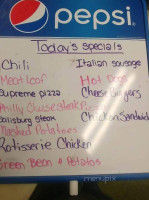 pepsi
Today's specials
Chili
Meatloaf
Supreme pizza
Philly Cheesesteak
Salisbury steak
Mashed Potatoes
Rotisserie Chicken
Green Bean & Potatos
Italian sausage
Hot Dogs
Cheese burgers
Chicken Sandwich